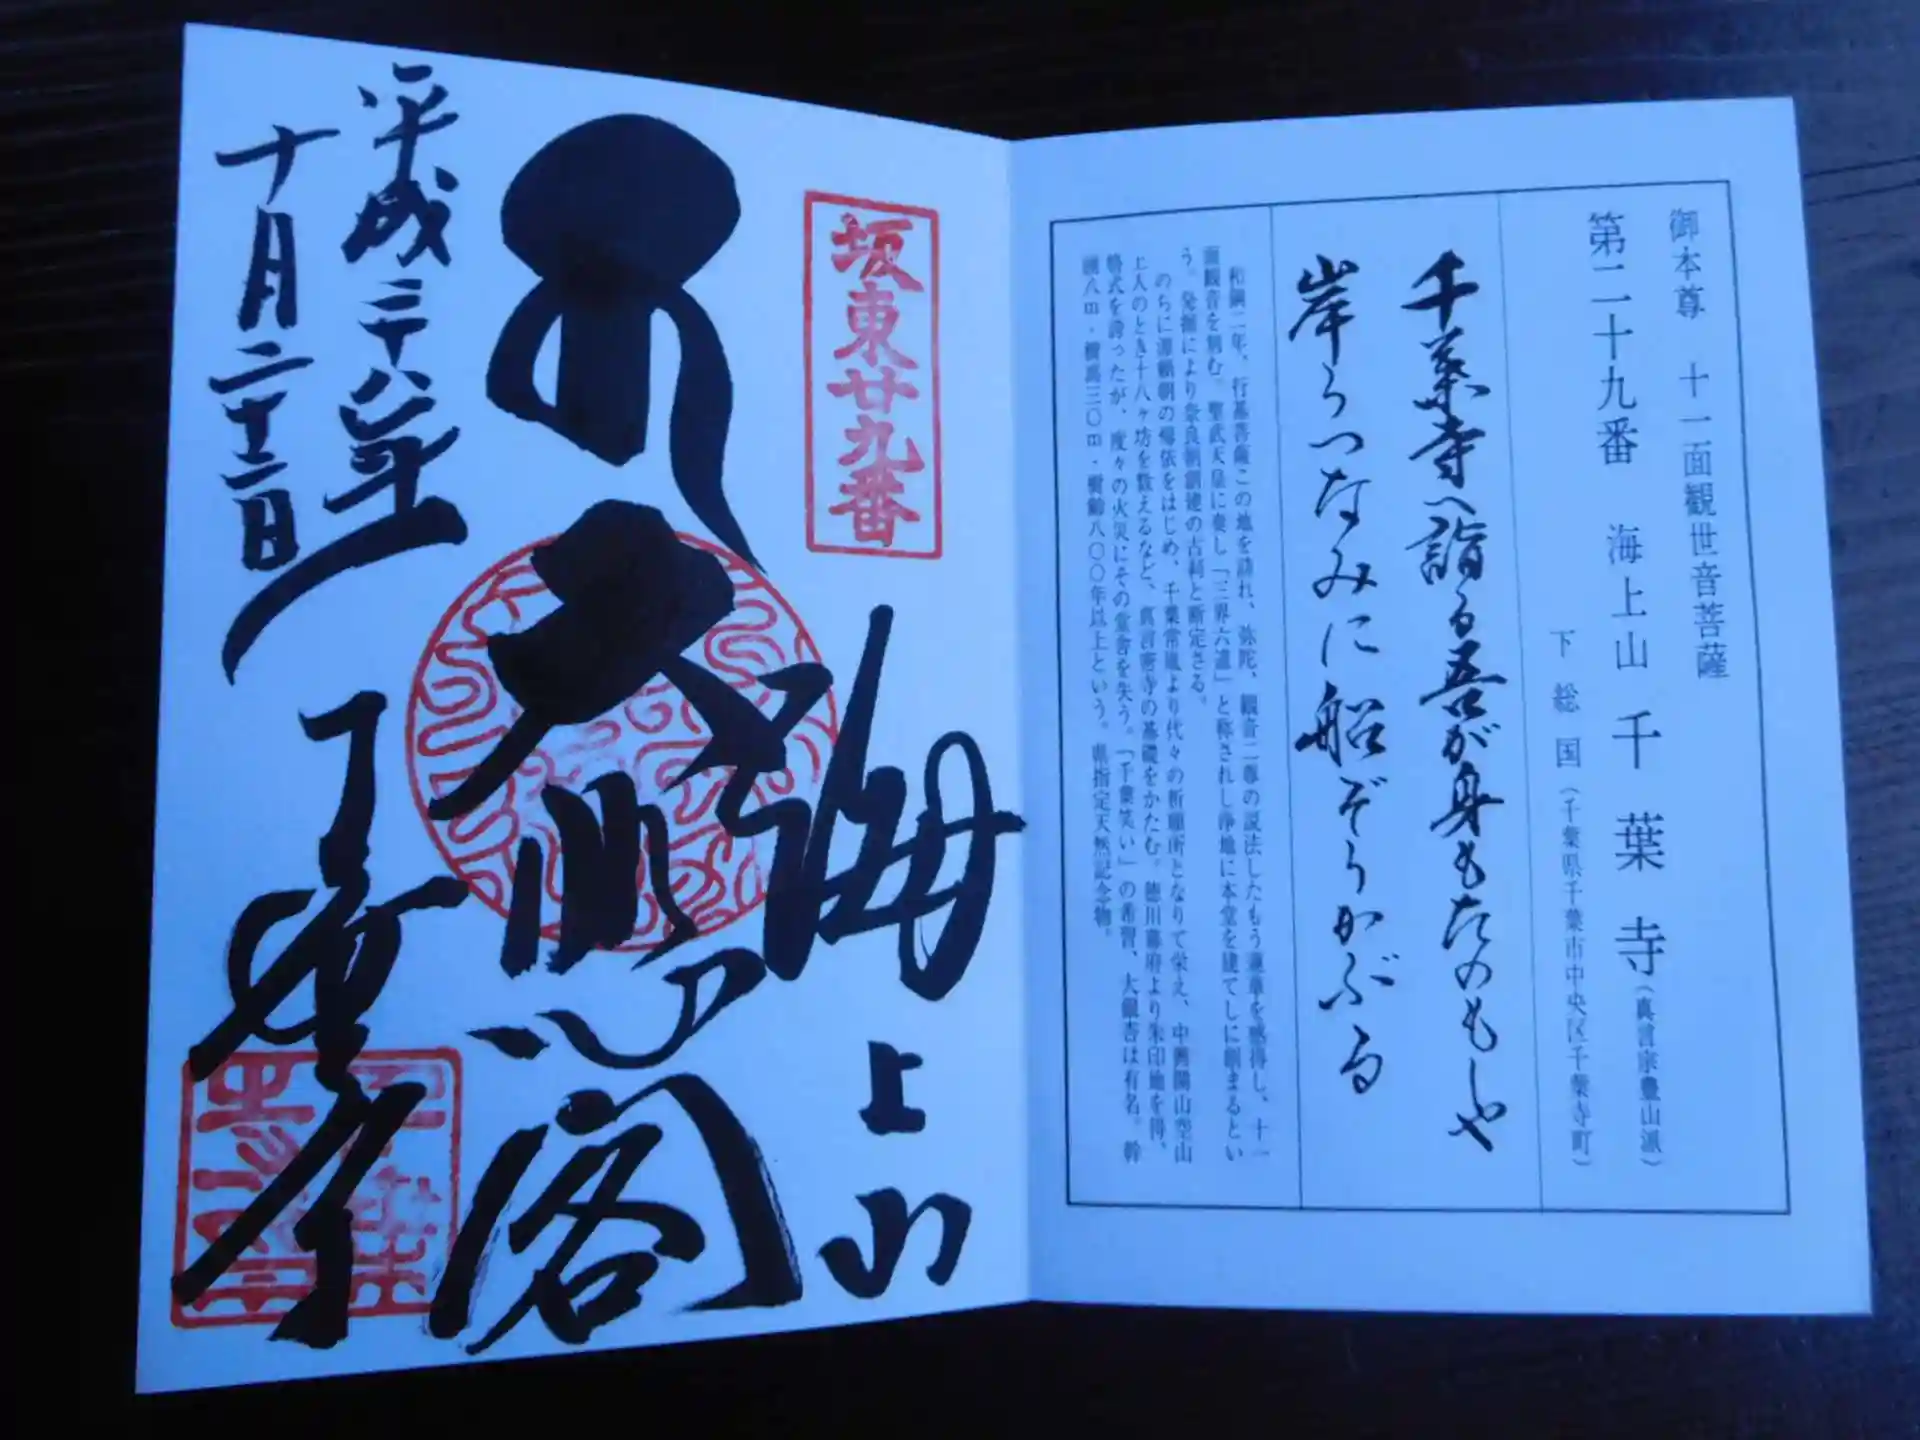 御本尊 十一面観世音菩薩
第二十九番 海上山 千葉寺(真言宗豊山派)
下総国(千葉県千葉市中央区千葉寺町)
千葉寺へ詣る吾が身もたのもしや
岸うつなみに船ぞうかぶる
和銅二年、行基菩薩この地を訪れ、弥陀、観音二尊の説法したもう蓮華を感得し、十一
面観音を刻む。聖武天皇に奏し「三界六道」と称されし浄地に本堂を建てしに創まるとい
う。発掘により奈良朝創建の古刹と断定さる。
のちに源頼朝の帰依をはじめ、千葉常胤より代々の祈願所となりて栄え、中興開山空山
上人のとき十八ヶ坊を数えるなど、真言密寺の基礎をかたむ。徳川幕府より朱印地を得、
格式を誇ったが、度々の火災にその堂舎を失う。「千葉笑い」の希習、大銀杏は有名。幹
囲八m・樹高三〇m・樹齢八〇〇年以上という。県指定天然記念物。
坂東廿九番
海上山
大悲閣
千葉寺
平成二十八年
十月二十二日